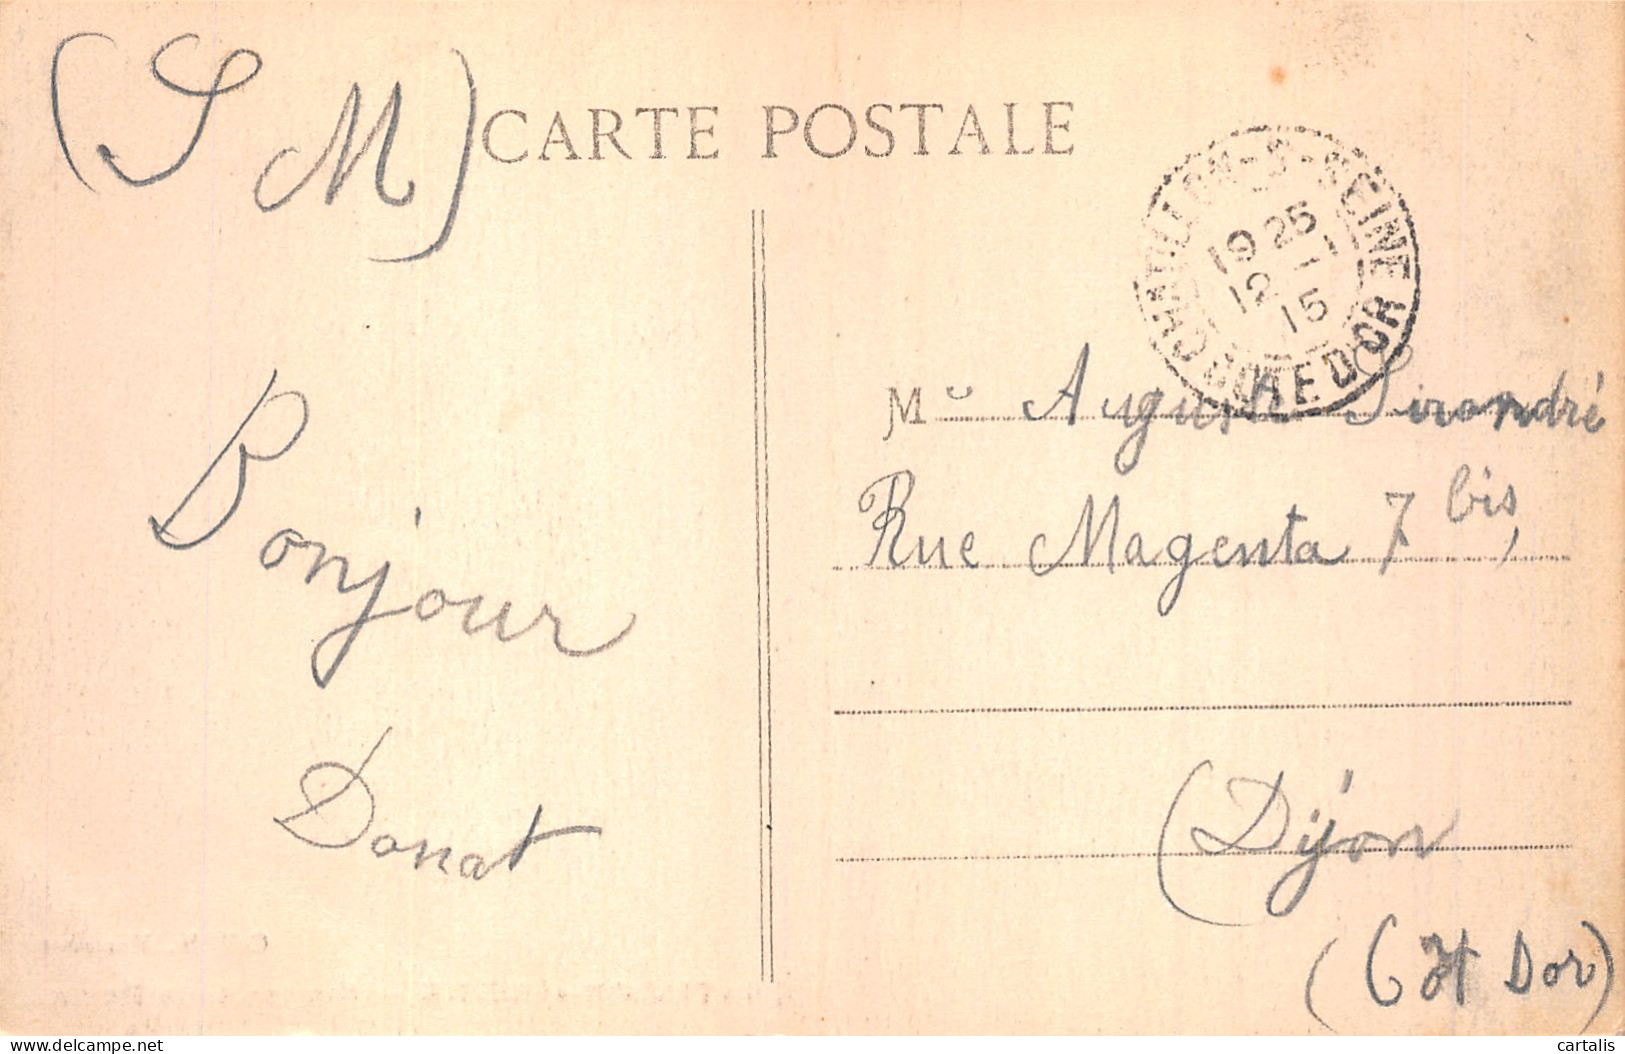 (S M)
CARTE POSTALE
CHATILLON-S-SEINE
19 25
12 - 1
15
COTE D'OR
Bonjour
Donat
Mr Auguste Sirandré
Rue Magenta 7 bis,
(Dijon
(Ct Dor)
cartalis
delcampe.net